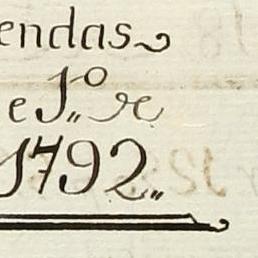 endas
e J.º de
1792,,